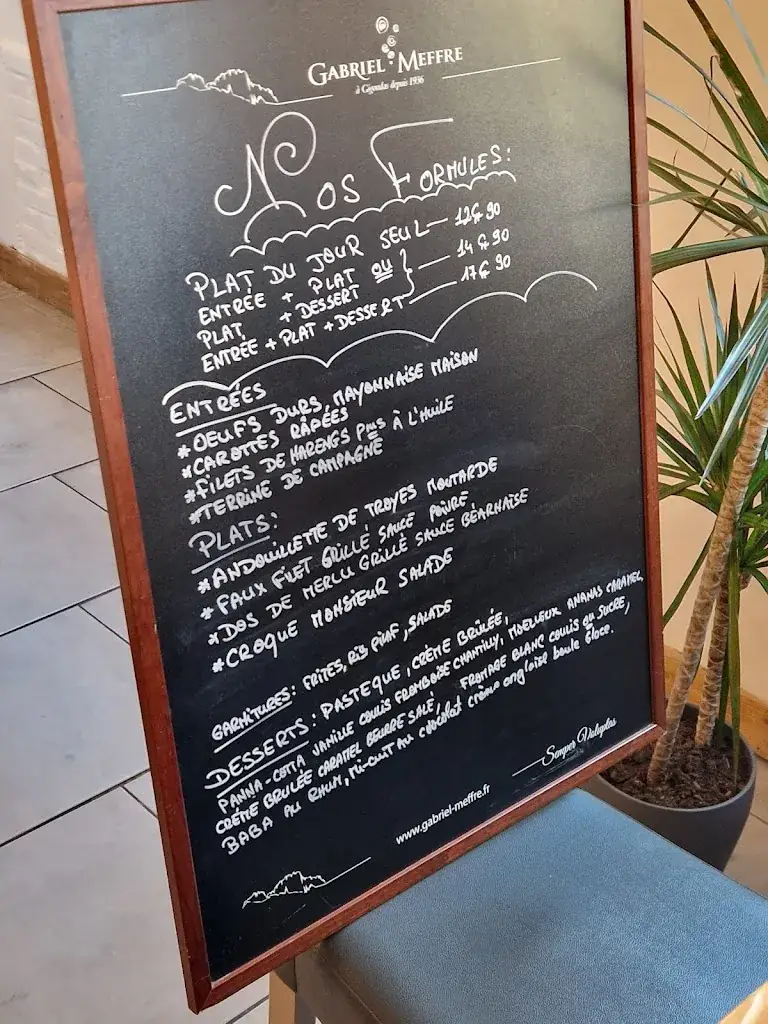 GABRIEL MEFFRE
à Gigondas depuis 1936
NOS FORMULES:
PLAT DU JOUR SEUL — 12€90
ENTRÉE + PLAT OU
PLAT + DESSERT } — 14€90
ENTRÉE + PLAT + DESSERT — 17€90
ENTRÉES
* OEUFS DURS, MAYONNAISE MAISON
* CAROTTES RÂPÉES
* FILETS DE HARENGS PMS À L'HUILE
* TERRINE DE CAMPAGNE
PLATS:
* ANDOUILLETTE DE TROYES MOUTARDE
* FAUX FILET GRILLÉ SAUCE POIVRE
* DOS DE MERLU GRILLÉ SAUCE BÉARNAISE
* CROQUE MONSIEUR SALADE
GARNITURES: FRITES, RIZ PILAF, SALADE
DESSERTS: PASTEQUE, CRÈME BRÛLÉE,
PANNA-COTTA VANILLE COULIS FRAMBOISE CHANTILLY, MOELLEUX ANANAS CARAMEL,
CRÈME BRULÉE CARAMEL BEURRE SALÉ, FROMAGE BLANC COULIS OU SUCRE,
BABA AU RHUM, MI-CUIT AU CHOCOLAT crème anglaise boule glace.
Semper Voluptas
www.gabriel-meffre.fr